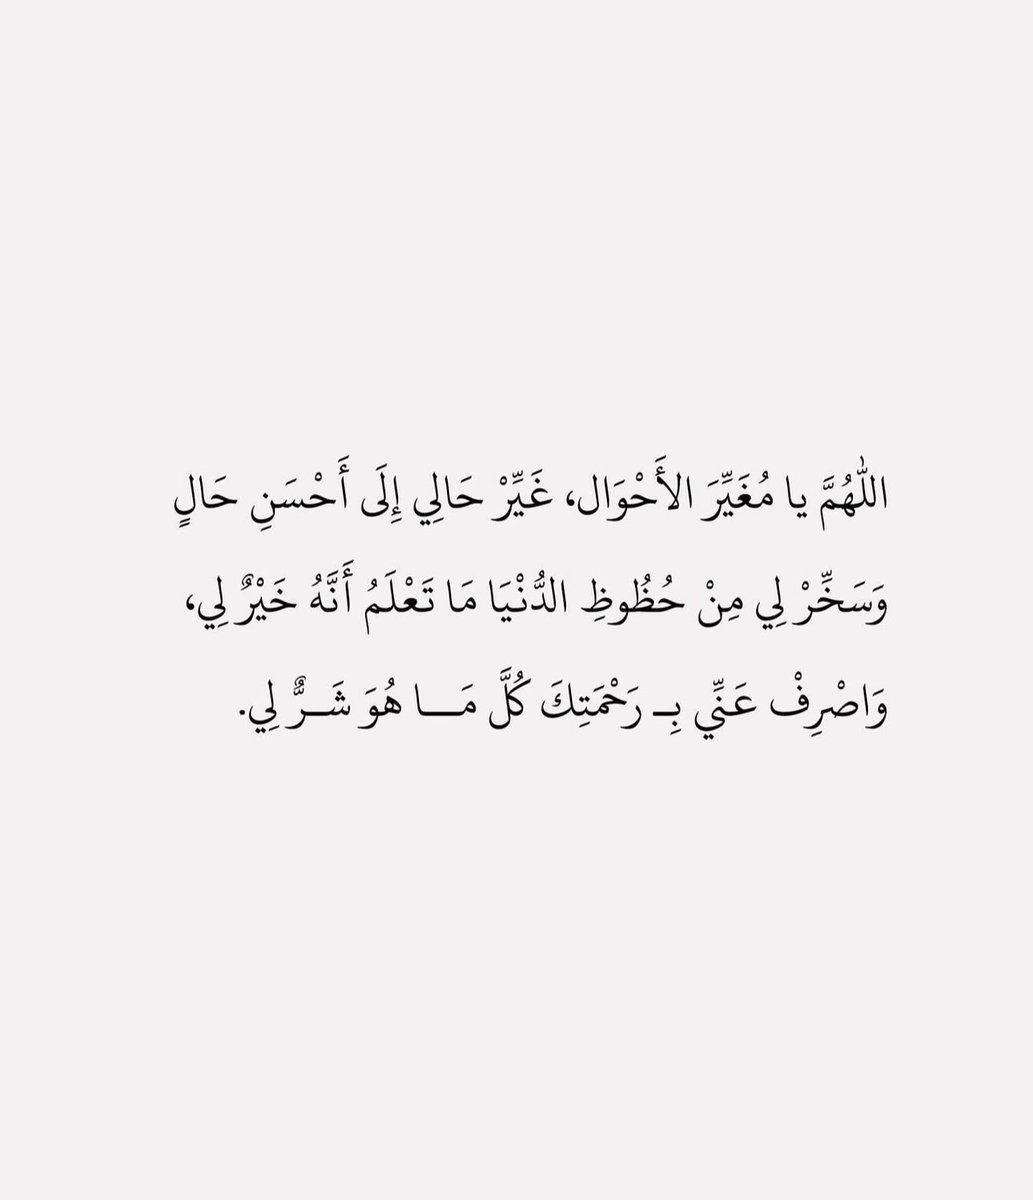 اللّٰهُمَّ يا مُغَيِّرَ الأَحْوَال، غَيِّرْ حَالِي إِلَى أَحْسَنِ حَالٍ
وَسَخِّرْ لِي مِنْ حُظُوظِ الدُّنْيَا مَا تَعْلَمُ أَنَّهُ خَيْرٌ لِي،
وَاصْرِفْ عَنِّي بِـ رَحْمَتِكَ كُلَّ مَـــا هُوَ شَــرٌّ لِي.